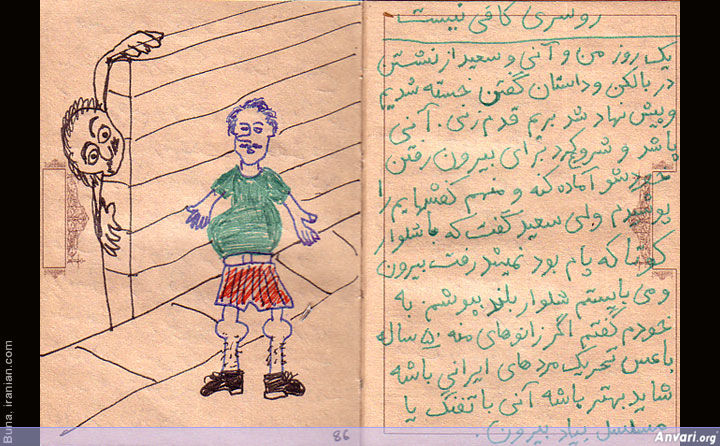 روسری کافی نیست
یک روز من و آنی و سعید از نشستن
در بالکن و داستان گفتن خسته شدیم
و پیش نهاد شد بریم قدم زنی. آنی
پاشد و شروکرد برای بیرون رفتن
خودشو آماده کنه و منهم کفشهایم را
پوشیدم ولی سعید گفت که با شلوار
کوتا که پام بود نمیشد رفت بیرون
و می بایستم شلوار بلند بپوشم. به
خودم گفتم اگر زانوهای منه ۵۰ ساله
باعس تحریک مردهای ایرانی باشه
شاید بهتر باشه آنی با تفنگ یا
مسلسل بیاد بیرون.
86
Buna. iranian.com
Anvari.org